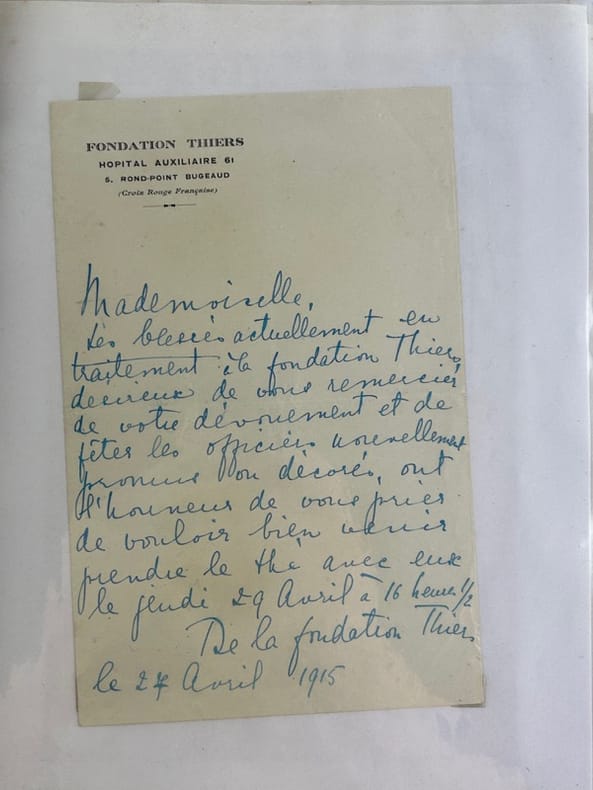 FONDATION THIERS
HOPITAL AUXILIAIRE 61
5, ROND-POINT BUGEAUD
(Croix Rouge Française)
Mademoiselle,
Les blessés actuellement en
traitement à la fondation Thiers,
désireux de vous remercier
de votre dévouement et de
fêter les officiers nouvellement
promus ou décorés, ont
l'honneur de vous prier
de vouloir bien venir
prendre le thé avec eux
le jeudi 29 Avril à 16 heures 1/2
De la fondation Thiers
le 27 Avril 1915